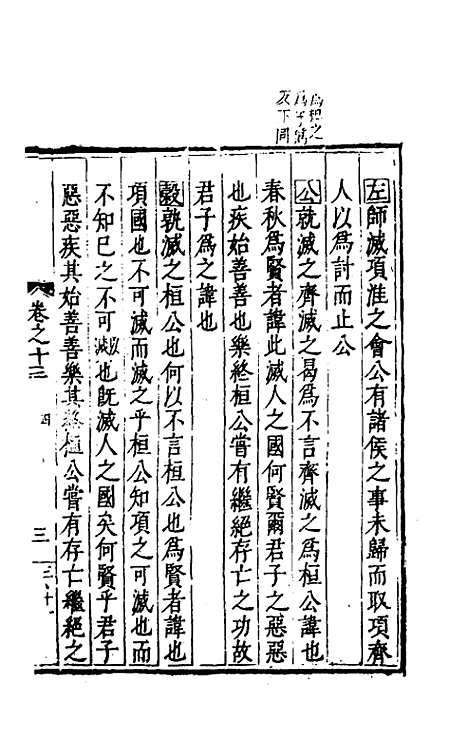 為桓之
為于偽
反下同
左師滅項淮之會公有諸侯之事未歸而取項齊
人以為討而止公
公孰滅之齊滅之曷為不言齊滅之為桓公諱也
春秋為賢者諱此滅人之國何賢爾君子之惡惡
也疾始善善也樂終桓公嘗有繼絕存亡之功故
君子為之諱也
穀孰滅之桓公也何以不言桓公也為賢者諱也
項國也不可滅而滅之乎桓公知項之可滅也而
不知已之不可滅也既滅人之國矣何賢乎君子
惡惡疾其始善善樂其終桓公嘗有存亡繼絕之
卷之十三
四
三